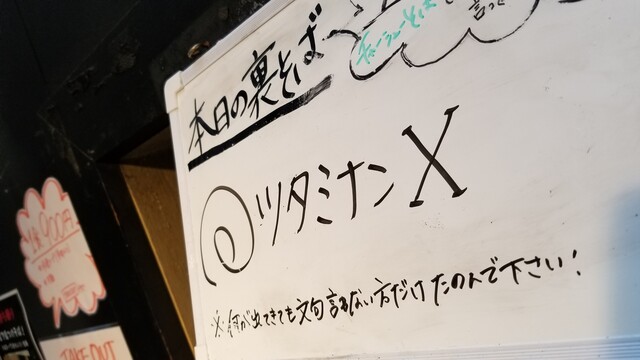 本日の裏そば
言って
ツタミナンX
※何が出てきても文句言わない方だけたのんで下さい!
900円
TAKE OUT